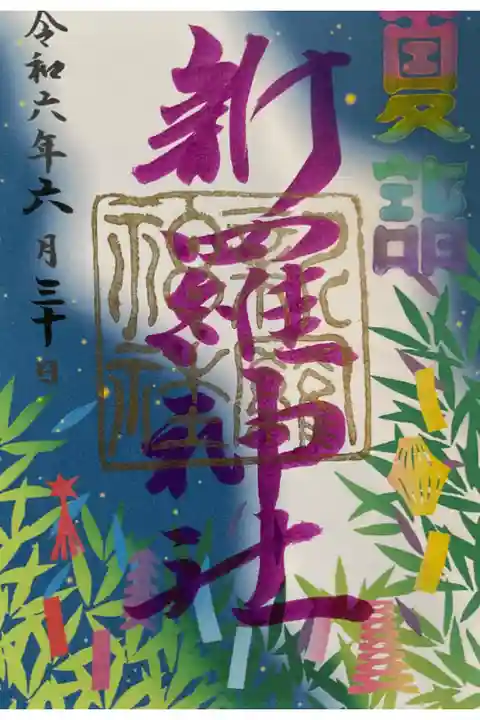 夏詣
新羅神社
令和六年六月三十日
新羅神社